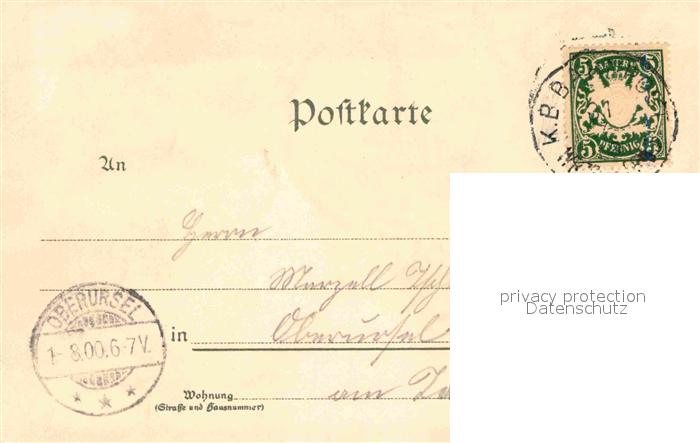 Postkarte
BAYERN
5 5
5 PFENNIG 5
K.B.B
7
An
Herrn
Marzell
privacy protection
Datenschutz
OBERURSEL
1-8.00.6-7V.
in Oberursel
am
Wohnung
(Straße und Hausnummer)